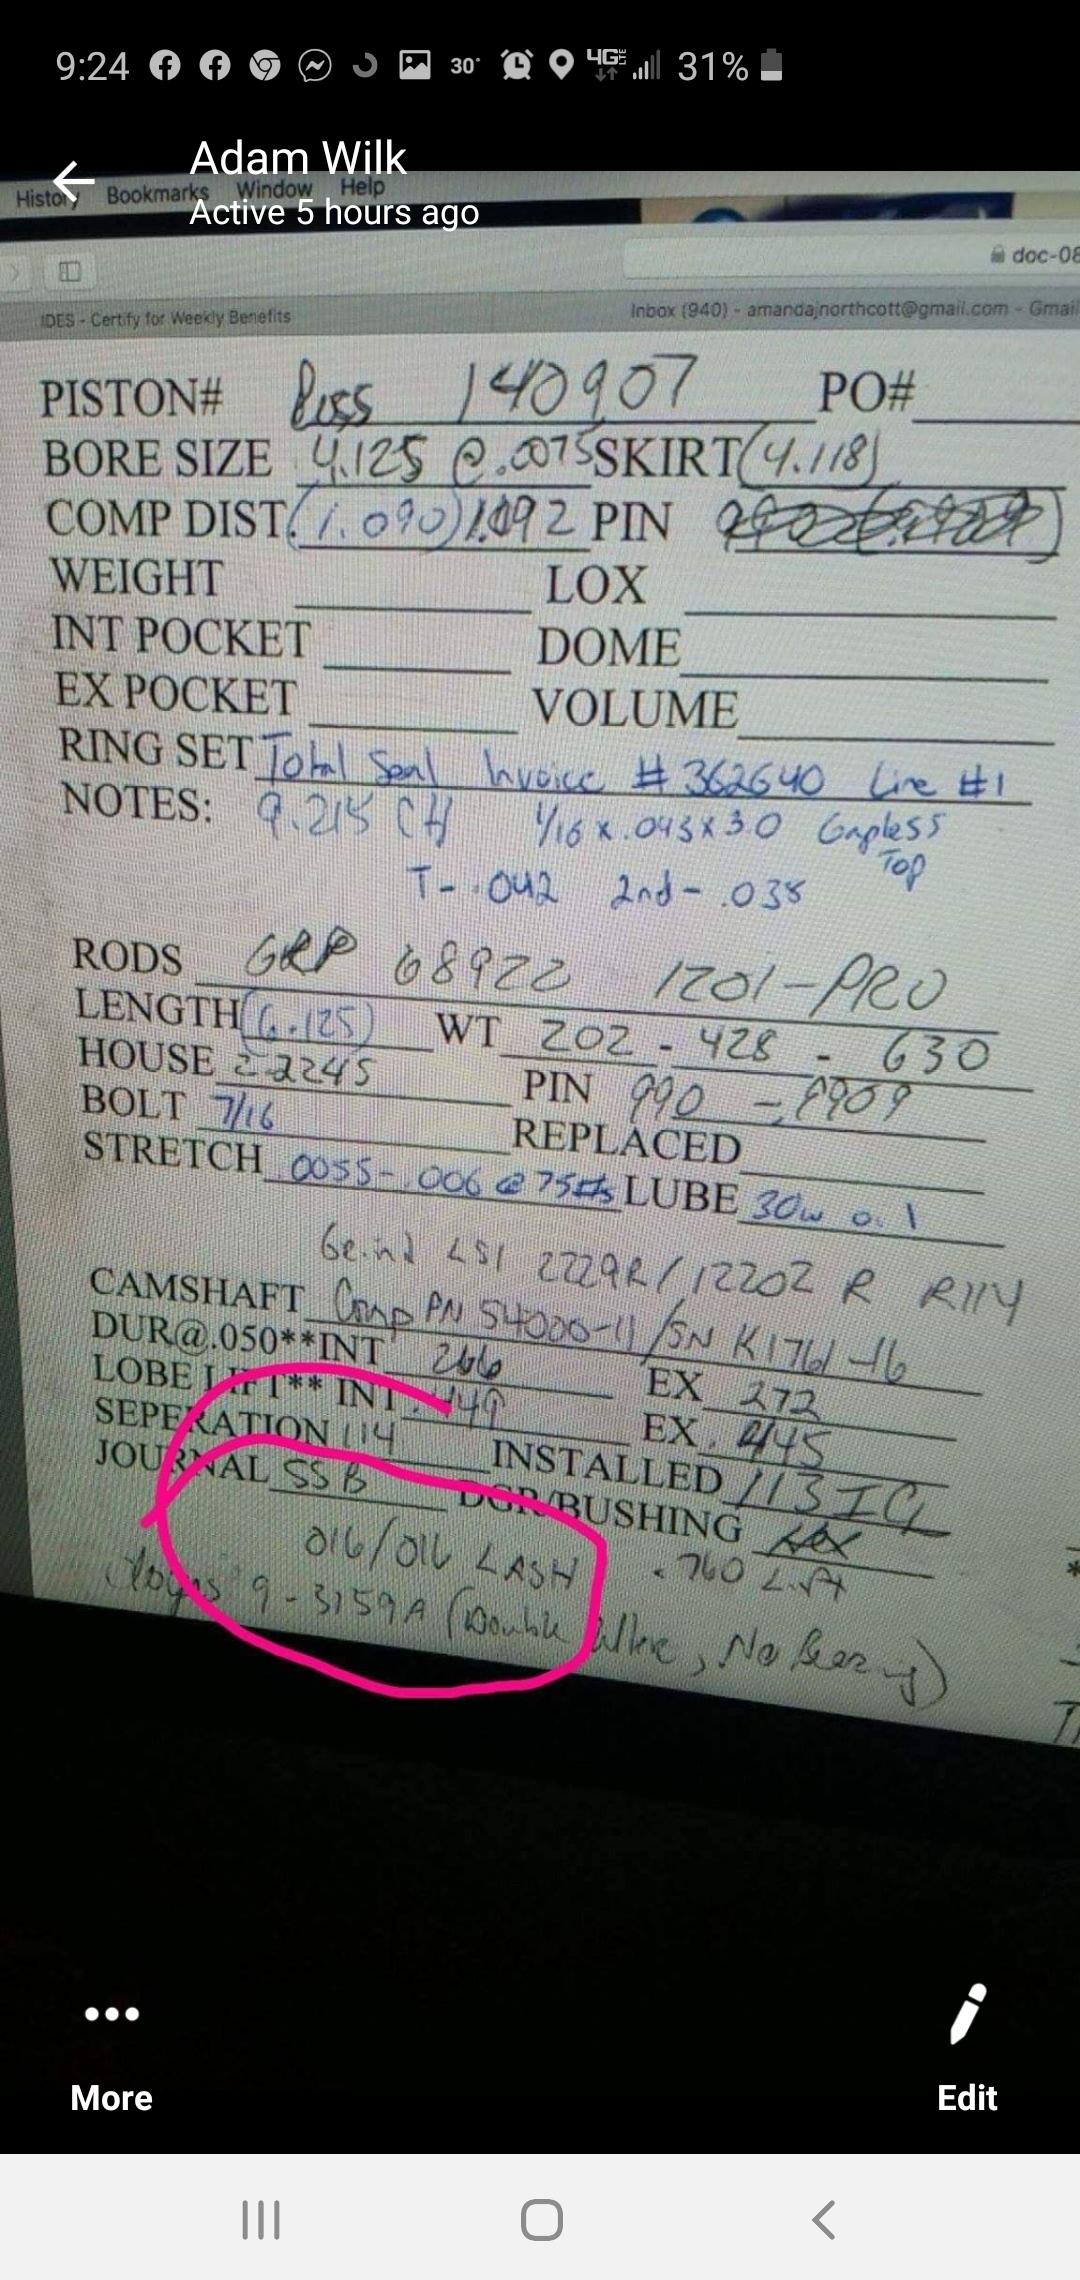 9:24 30° 4G LTE 31%
Adam Wilk
Active 5 hours ago
History Bookmarks Window Help
doc-08
IDES - Certify for Weekly Benefits Inbox (940) - amandajnorthcott@gmail.com - Gmail
PISTON# 140907 PO#
BORE SIZE 4.125 @ .0075 SKIRT (4.118)
COMP DIST. (1.090) 1.092 PIN
WEIGHT LOX
INT POCKET DOME
EX POCKET VOLUME
RING SET Total Seal Invoice # 362640 Line #1
NOTES: 9.215 CH 1/16 x .043 x 3.0 Gapless
Top
T- .042 2nd - .038
RODS GRP 68922 1201-PRO
LENGTH (6.125) WT 202 - 428 - 630
HOUSE 2.2245 PIN 990 - .9909
BOLT 7/16 REPLACED
STRETCH .0055-.006 @ 75 LUBE 30w oil
Grind LSI 2229R/12202 R R114
CAMSHAFT Comp PN 54000-11/SN K1761-16
DUR@.050**INT 266 EX 272
LOBE LIFT** INT .449 EX .445
SEPERATION 114 INSTALLED 113 ICL
JOURNAL SSB DGR/BUSHING
016/016 LASH .760 Lift
9-3159A (Double Wide, No Bearing)
More Edit